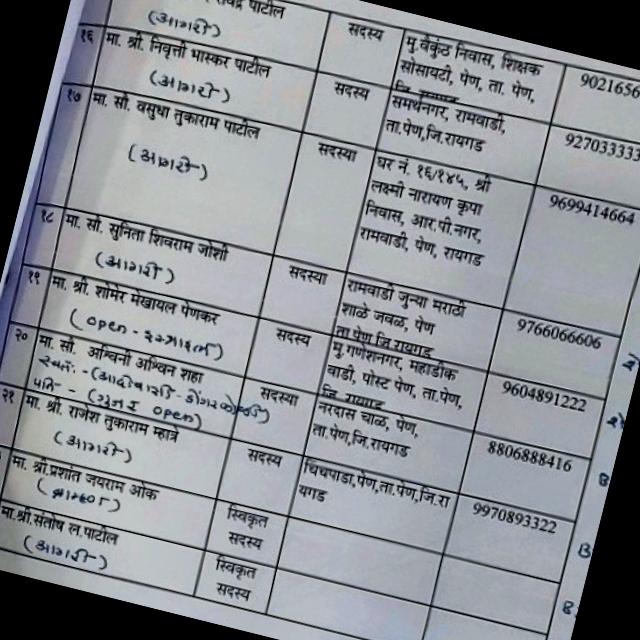 पाटील
(आगरी)
सदस्य
मु.वैकुंठ निवास, शिक्षक
सोसायटी, पेण, ता. पेण,
9021656
१६
मा. श्री. निवृत्ती भास्कर पाटील
(आगरी)
सदस्य
समर्थनगर, रामवाडी,
ता.पेण,जि.रायगड
927033333
१७
मा. सौ. वसुधा तुकाराम पाटील
(आगरी)
सदस्या
घर नं. १६/१४५, श्री
लक्ष्मी नारायण कृपा
निवास, आर.पी.नगर,
रामवाडी, पेण, रायगड
9699414664
१८
मा. सौ. सुनिता शिवराम जोशी
(आगरी)
सदस्या
रामवाडी जुन्या मराठी
शाळे जवळ, पेण
ता.पेण,जि.रायगड
9766066606
१९
मा. श्री. शोमेर मेखायल पेणकर
(open - इस्राइल)
सदस्य
मु.गणेशनगर, महाडीक
वाडी, पोस्ट पेण, ता.पेण,
जि. रायगड
9604891222
२०
मा. सौ. अश्विनी अश्विन शहा
स्वतः - (आदीवासी-डोंगरकोळी)
पति - (गुजर open)
सदस्या
नरदास चाळ, पेण,
ता.पेण,जि.रायगड
8806888416
२१
मा. श्री. राजेश तुकाराम म्हात्रे
(आगरी)
सदस्य
चिंचपाडा,पेण,ता.पेण,जि.रा
यगड
9970893322
मा. श्री.प्रशांत जयराम ओक
(ब्राम्हण)
स्विकृत
सदस्य
मा.श्री.संतोष ल.पाटील
(आगरी)
स्विकृत
सदस्य